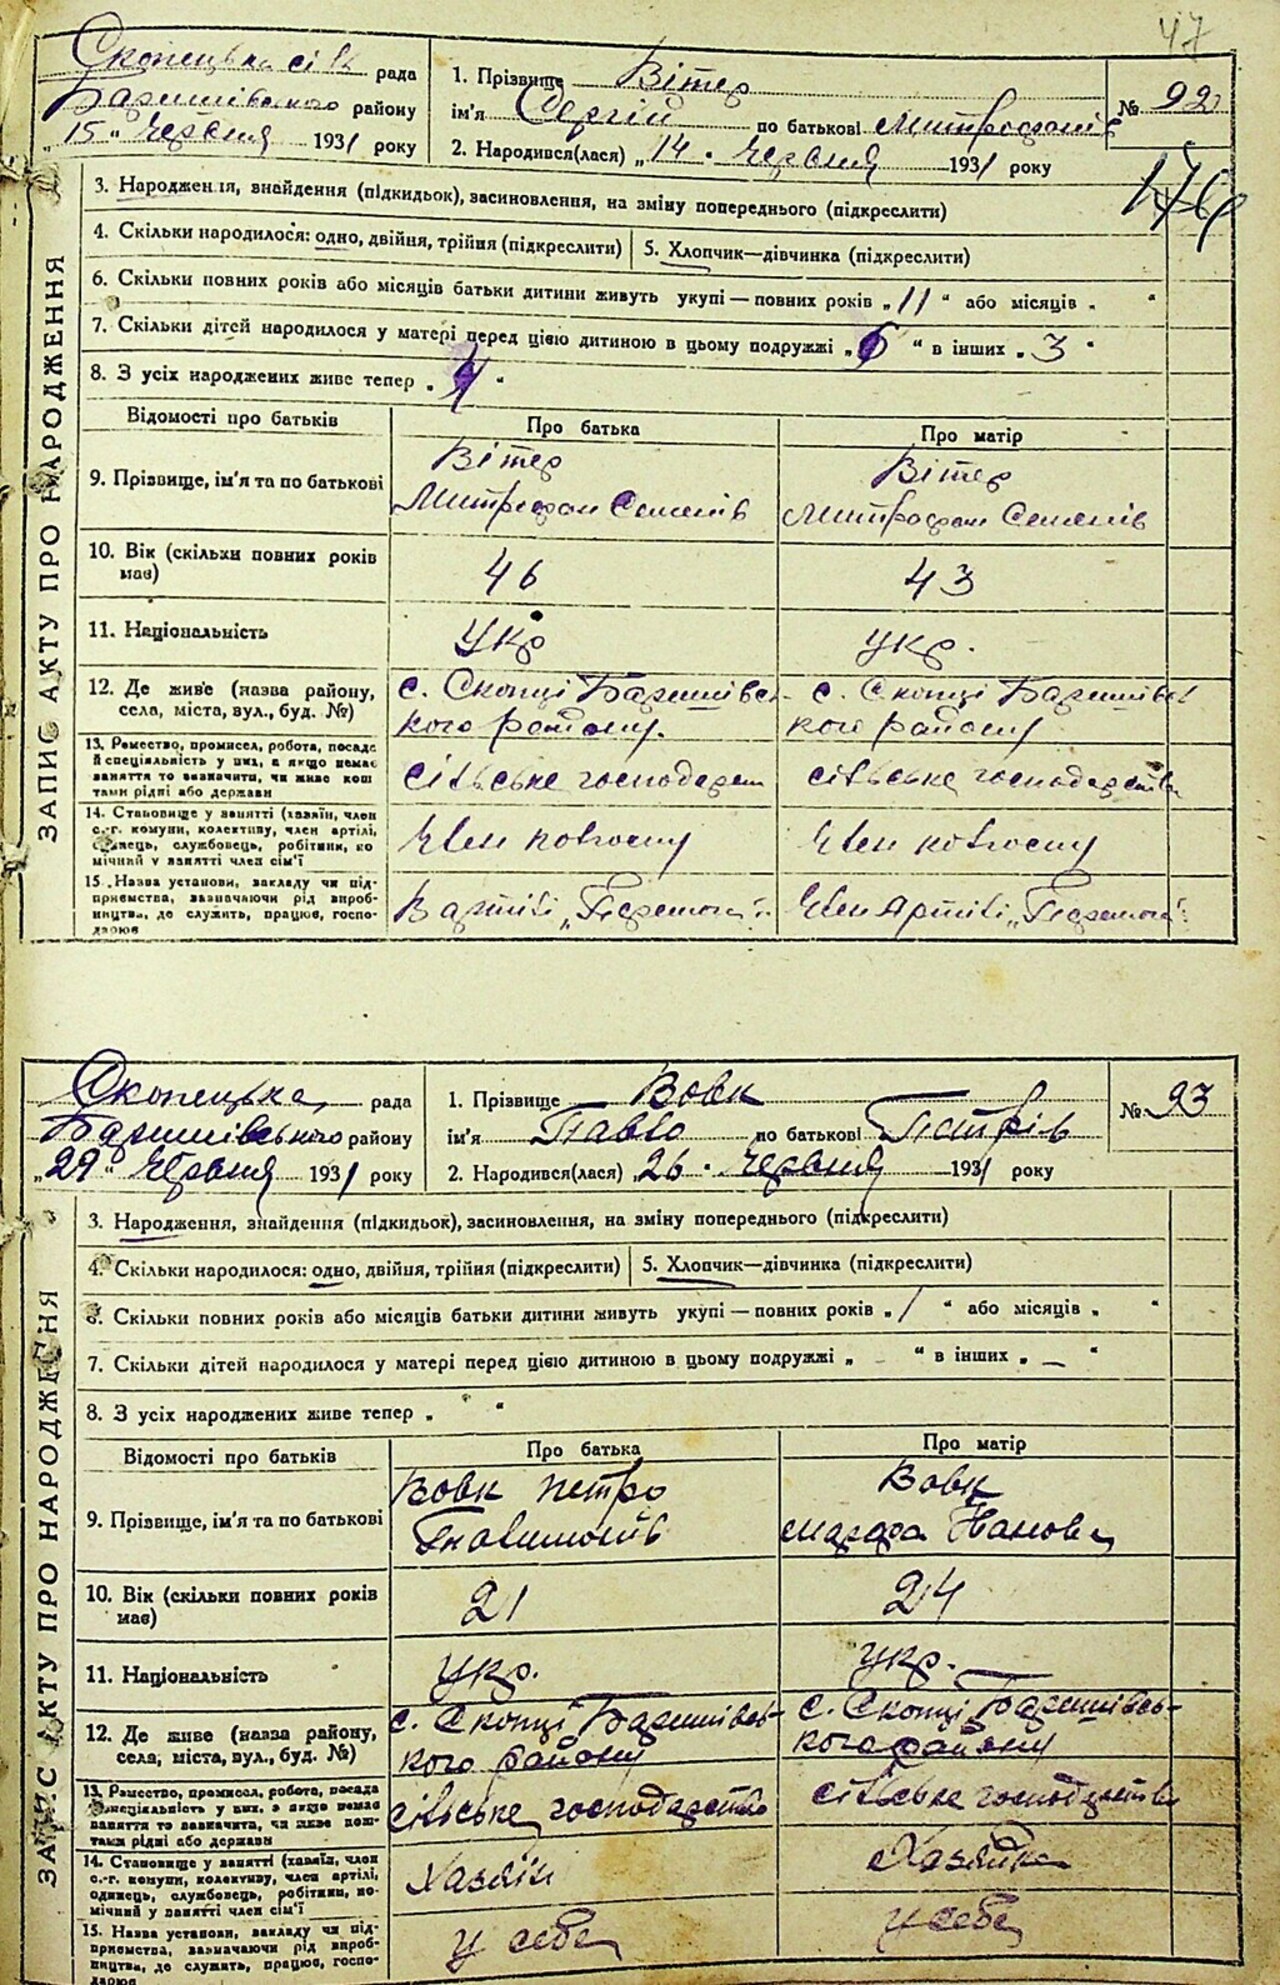 47
Скопецька сіл рада
Баришівського району
„15" Червня 1931 року
1. Прізвище Вітер
ім'я Сергій по батькові Митрофанів
№ 92
2. Народився(лася) „14" Червня 1931 року
3. Народження, знайдення (підкидьок), засиновлення, на зміну попереднього (підкреслити)
4. Скільки народилося: одно, двійня, трійня (підкреслити) 5. Хлопчик—дівчинка (підкреслити)
6. Скільки повних років або місяців батьки дитини живуть укупі — повних років „11" або місяців „ "
7. Скільки дітей народилося у матері перед цією дитиною в цьому подружжі „6" в інших „3"
8. З усіх народжених живе тепер „4"
ЗАПИС АКТУ ПРО НАРОДЖЕННЯ
Відомості про батьків Про батька Про матір
9. Прізвище, ім'я та по батькові
Вітер
Митрофан Семенів
Вітер
Митрофан Семенів
10. Вік (скільки повних років має) 46 43
11. Національність Укр укр.
12. Де живе (назва району, села, міста, вул., буд. №)
с. Скопці Баришівсь-
кого району.
с. Скопці Баришівсь
кого району
13. Ремество, промисел, робота, посада
й спеціяльність у них, а якщо немає
заняття то визначити, чи живе кош
тами рідні або держави
сільське господарст
сільське господарство
14. Становище у занятті (хазяїн, член
с.-г. комуни, колективу, член артілі,
одинець, службовець, робітник, по
мічний у занятті член сім'ї
Член колгоспу
Член колгоспу
15. Назва установи, закладу чи під-
приємства, зазначаючи рід вироб-
ництва, де служить, працює, госпо-
дарює
В артілі „Перемога"
Член Артілі „Перемога"
Скопецька рада
Баришівського району
„29" Червня 1931 року
1. Прізвище Вовк
ім'я Павло по батькові Петрів
№ 93
2. Народився(лася) „26" Червня 1931 року
3. Народження, знайдення (підкидьок), засиновлення, на зміну попереднього (підкреслити)
4. Скільки народилося: одно, двійня, трійня (підкреслити) 5. Хлопчик—дівчинка (підкреслити)
6. Скільки повних років або місяців батьки дитини живуть укупі — повних років „1" або місяців „ "
7. Скільки дітей народилося у матері перед цією дитиною в цьому подружжі „—" в інших „—"
8. З усіх народжених живе тепер „ "
ЗАПИС АКТУ ПРО НАРОДЖЕННЯ
Відомості про батьків Про батька Про матір
9. Прізвище, ім'я та по батькові
Вовк Петро
Вовк
Іванова
10. Вік (скільки повних років має) 21 24
11. Національність Укр. укр.
12. Де живе (назва району, села, міста, вул., буд. №)
с. Скопці Баришівсь-
кого району
с. Скопці Баришівсь-
кого району
13. Ремество, промисел, робота, посада
й спеціяльність у них, а якщо немає
заняття то визначити, чи живе кош-
тами рідні або держави
сільське господарство
сільське господарство
14. Становище у занятті (хазяїн, член
с.-г. комуни, колективу, член артілі,
одинець, службовець, робітник, по-
мічний у занятті член сім'ї
Хазяїн
Хазяйка
15. Назва установи, закладу чи під-
приємства, зазначаючи рід вироб-
ництва, де служить, працює, госпо-
дарює
у себе
у себе